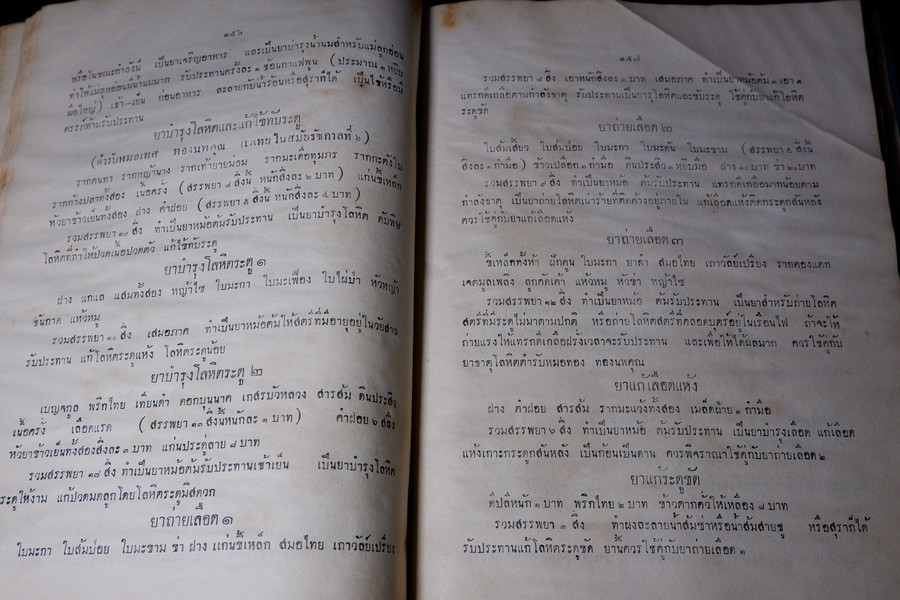 ๑๕๖
หรือในขณะกำลังมี เป็นยาเจริญอาหาร และเป็นยาบำรุงน้ำนมสำหรับแม่ลูกอ่อน
ทำให้แม่ลูกอ่อนมีน้ำนมมาก รับประทานครั้งละ ๑ ช้อนกาแฟพูน (ประมาณ ๑ หยิบ
มือใหญ่) เช้า-เย็น ก่อนอาหาร ละลายกับน้ำร้อนหรือสุราก็ได้ เป็นไข้หรือมี
ครรภ์ห้ามรับประทาน
ยาบำรุงโลหิตและแก้ไข้ทับระดู
(ตำรับหมอเทศ ทองนพคุณ แพทย์ในสมัยรัชกาลที่ ๖)
รากคนทา รากหญ้านาง รากเท้ายายม่อม รากมะเดื่อทุมภร รากกะตังใบ
รากก้างปลาทั้งสอง เนื้อครั่ง (สรรพยา ๘ สิ่งนี้ หนักสิ่งละ ๒ บาท) แก่นขี้เหล็ก
หัวยาข้าวเย็นทั้งสอง ฝาง คำฝอย (สรรพยา ๕ สิ่งนี้ หนักสิ่งละ ๔ บาท)
รวมสรรพยา ๑๓ สิ่ง ทำเป็นยาหม้อต้มรับประทาน เป็นยาบำรุงโลหิต ดับพิษ
โลหิตที่ทำให้ปวดเนื้อปวดตัว แก้ไข้ทับระดู
ยาบำรุงโลหิตระดู ๑
ฝาง แกแล แสมทั้งสอง หญ้าไซ ใบมะกา ใบมะเฟือง ใบไผ่ป่า หัวหญ้า
ชันกาด แห้วหมู
รวมสรรพยา ๑๐ สิ่ง เสมอภาค ทำเป็นยาหม้อต้มให้สตรีที่มีอายุอยู่ในวัยสาว
รับประทาน แก้โลหิตระดูแห้ง โลหิตระดูน้อย
ยาบำรุงโลหิตระดู ๒
เบญจกูล พริกไทย เทียนดำ ดอกบุนนาค เกสรบัวหลวง สารส้ม ดินประสิว
เนื้อครั่ง เลือดแรด (สรรพยา ๑๓ สิ่งนี้หนักละ ๑ บาท) คำฝอย ๖ สลึง
หัวยาข้าวเย็นทั้งสองสิ่งละ ๓ บาท แก่นประดู่ลาย ๘ บาท
รวมสรรพยา ๑๗ สิ่ง ทำเป็นยาหม้อต้มรับประทานเช้าเย็น เป็นยาบำรุงโลหิต
ระดูให้งาม แก้ปวดมดลูกโดยโลหิตระดูมีสดวก
ยาถ่ายเลือด ๑
ใบมะกา ใบส้มป่อย ใบมะขาม ข่า ฝาง แก่นขี้เหล็ก สมอไทย เถาวัลย์เปรียง
๑๕๗
รวมสรรพยา ๘ สิ่ง เอาหนักสิ่งละ ๓ บาท เสมอภาค ทำเป็นยาหม้อต้ม ๓ เอา ๑
แทรกดีเกลือตามกำลังธาตุ รับประทานเป็นยารุโลหิตและขับระดู ใช้คู่กับยาแก้โลหิต
ระดูขัด
ยาถ่ายเลือด ๒
ใบส้มเสี้ยว ใบส้มป่อย ใบมะกา ใบมะดัน ใบมะขาม (สรรพยา ๕ สิ่งนี้
สิ่งละ ๑ กำมือ) ข้าวเปลือก ๑ กำมือ ดินประสิว ๓ หยิบมือ ฝาง ๑๐ บาท ข่า ๒๐ บาท
รวมสรรพยา ๙ สิ่ง ทำเป็นยาหม้อ ต้มรับประทาน แทรกดีเกลือมากน้อยตาม
กำลังธาตุ เป็นยาถ่ายโลหิตเน่าร้ายที่คั่งค้างอยู่ภายใน แก้เลือดแห้งติดกระดูกสันหลัง
ควรใช้คู่กับยาแก้เลือดแห้ง
ยาถ่ายเลือด ๓
ขี้เหล็กทั้งห้า ผักคูน ใบมะกา ยาดำ สมอไทย เถาวัลย์เปรียง รากตองแตก
เจตมูลเพลิง ลูกคัดเค้า แห้วหมู หัวข่า หญ้าไซ
รวมสรรพยา ๑๒ สิ่ง ทำเป็นยาหม้อ ต้มรับประทาน เป็นยาสำหรับถ่ายโลหิต
สตรีที่มีระดูไม่มาตามปกติ หรือถ่ายโลหิตสตรีที่คลอดบุตร์อยู่ในเรือนไฟ ถ้าจะให้
ถ่ายแรงให้แทรกดีเกลือฝรั่งเวลาจะรับประทาน และเพื่อให้ได้ผลมาก ควรใช้คู่กับ
ยาธาตุโลหิตตำรับหมอทอง ทองนพคุณ
ยาแก้เลือดแห้ง
ฝาง คำฝอย สารส้ม รากมะแว้งทั้งสอง เมล็ดฝ้าย ๑ กำมือ
รวมสรรพยา ๖ สิ่ง ทำเป็นยาหม้อ ต้มรับประทาน เป็นยาบำรุงเลือด แก้เลือด
แห้งเกาะกระดูกสันหลัง เป็นก้อนเป็นดาน ควรพิจารณาใช้คู่กับยาถ่ายเลือด ๒
ยาแก้ระดูขัด
ดีปลีหนัก ๑ บาท พริกไทย ๒ บาท ข้าวตากคั่วให้เหลือง ๘ บาท
รวมสรรพยา ๓ สิ่ง ทำผงละลายน้ำส้มซ่าหรือน้ำส้มสายชู หรือสุราก็ได้
รับประทานแก้โลหิตระดูขัด ยานี้ควรใช้คู่กับยาถ่ายเลือด ๑